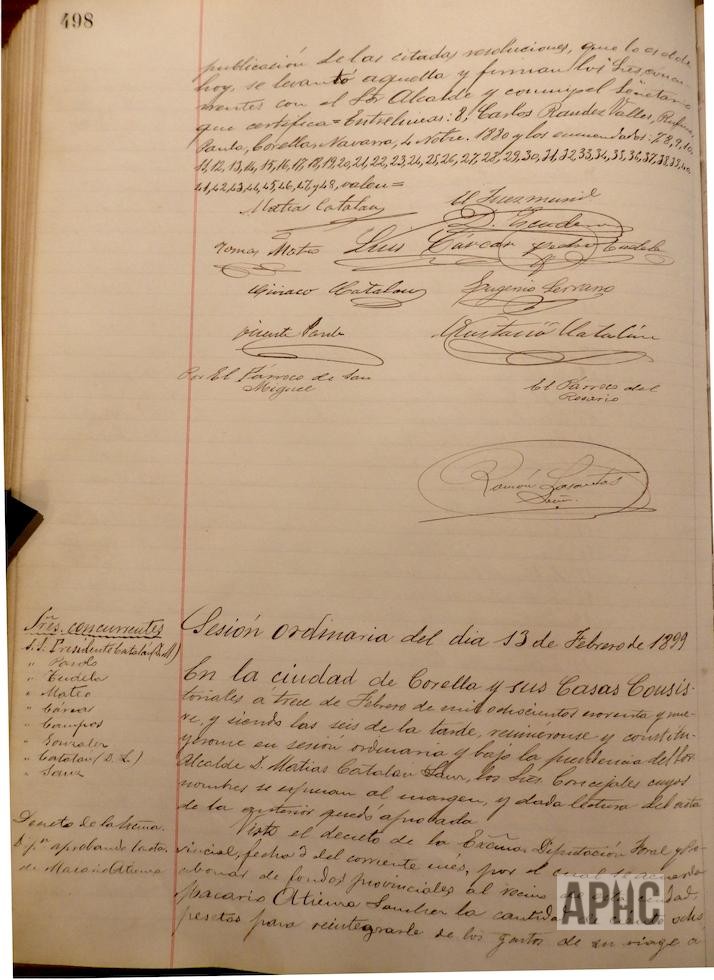 498
publicación de las citadas resoluciones, que lo es de
hoy, se levantó aquella y firman los Sres. concu-
rrentes con el Sr. Alcalde y conmigo el Secretario
que certifico = Entrelíneas: 8; Carlos Rández Vallés,
Corella, Navarra, 4 Novre. 1880 y los enmendados: 7, 8, 9, 10,
11, 12, 13, 14, 15, 16, 17, 18, 19, 20, 21, 22, 23, 24, 25, 26, 27, 28, 29, 30, 31, 32, 33, 34, 35, 36, 37, 38, 39, 40,
41, 42, 43, 44, 45, 46, 47 y 48, valen =
Matías Catalán
El Juez munil
D. Escudero
Tomas Mateo
Luis Cárcar
Pedro Tudela
Ciriaco Catalan
Eugenio Serrano
Vicente Pardo
Eustasio Catalán
Por El Párroco de San
Miguel
El Párroco del
Rosario
Ramón Lasantas
Srio.
Sres. concurrentes
S. S. Presidente Catalán (D. M.)
" Pardo
" Tudela
" Mateo
" Cárcar
" Campos
" González
" Catalán (D. L.)
" Sanz
Sesión ordinaria del dia 13 de Febrero de 1899
En la ciudad de Corella y sus Casas Consis-
toriales á trece de Febrero de mil ochocientos noventa y nue-
ve, y siendo las seis de la tarde, reuniéronse y constitu-
yéronse en sesión ordinaria y bajo la presidencia del Sor.
Alcalde D. Matías Catalán Sanz, los Sres. Concejales cuyos
nombres se expresan al margen, y dada lectura del acta
de la anterior quedó aprobada
Decreto de la Excma.
D. pon. aprobando
de Macario Atienza
Visto el decreto de la Excma. Diputación Foral y pro-
vincial, fecha 3 del corriente mes, por el cual se acuerda
abonar de fondos provinciales al vecino de esta ciudad,
Macario Atienza Sanchez la cantidad de ciento ocho
pesetas para reintegrarle de los gastos de su viage á
APHC